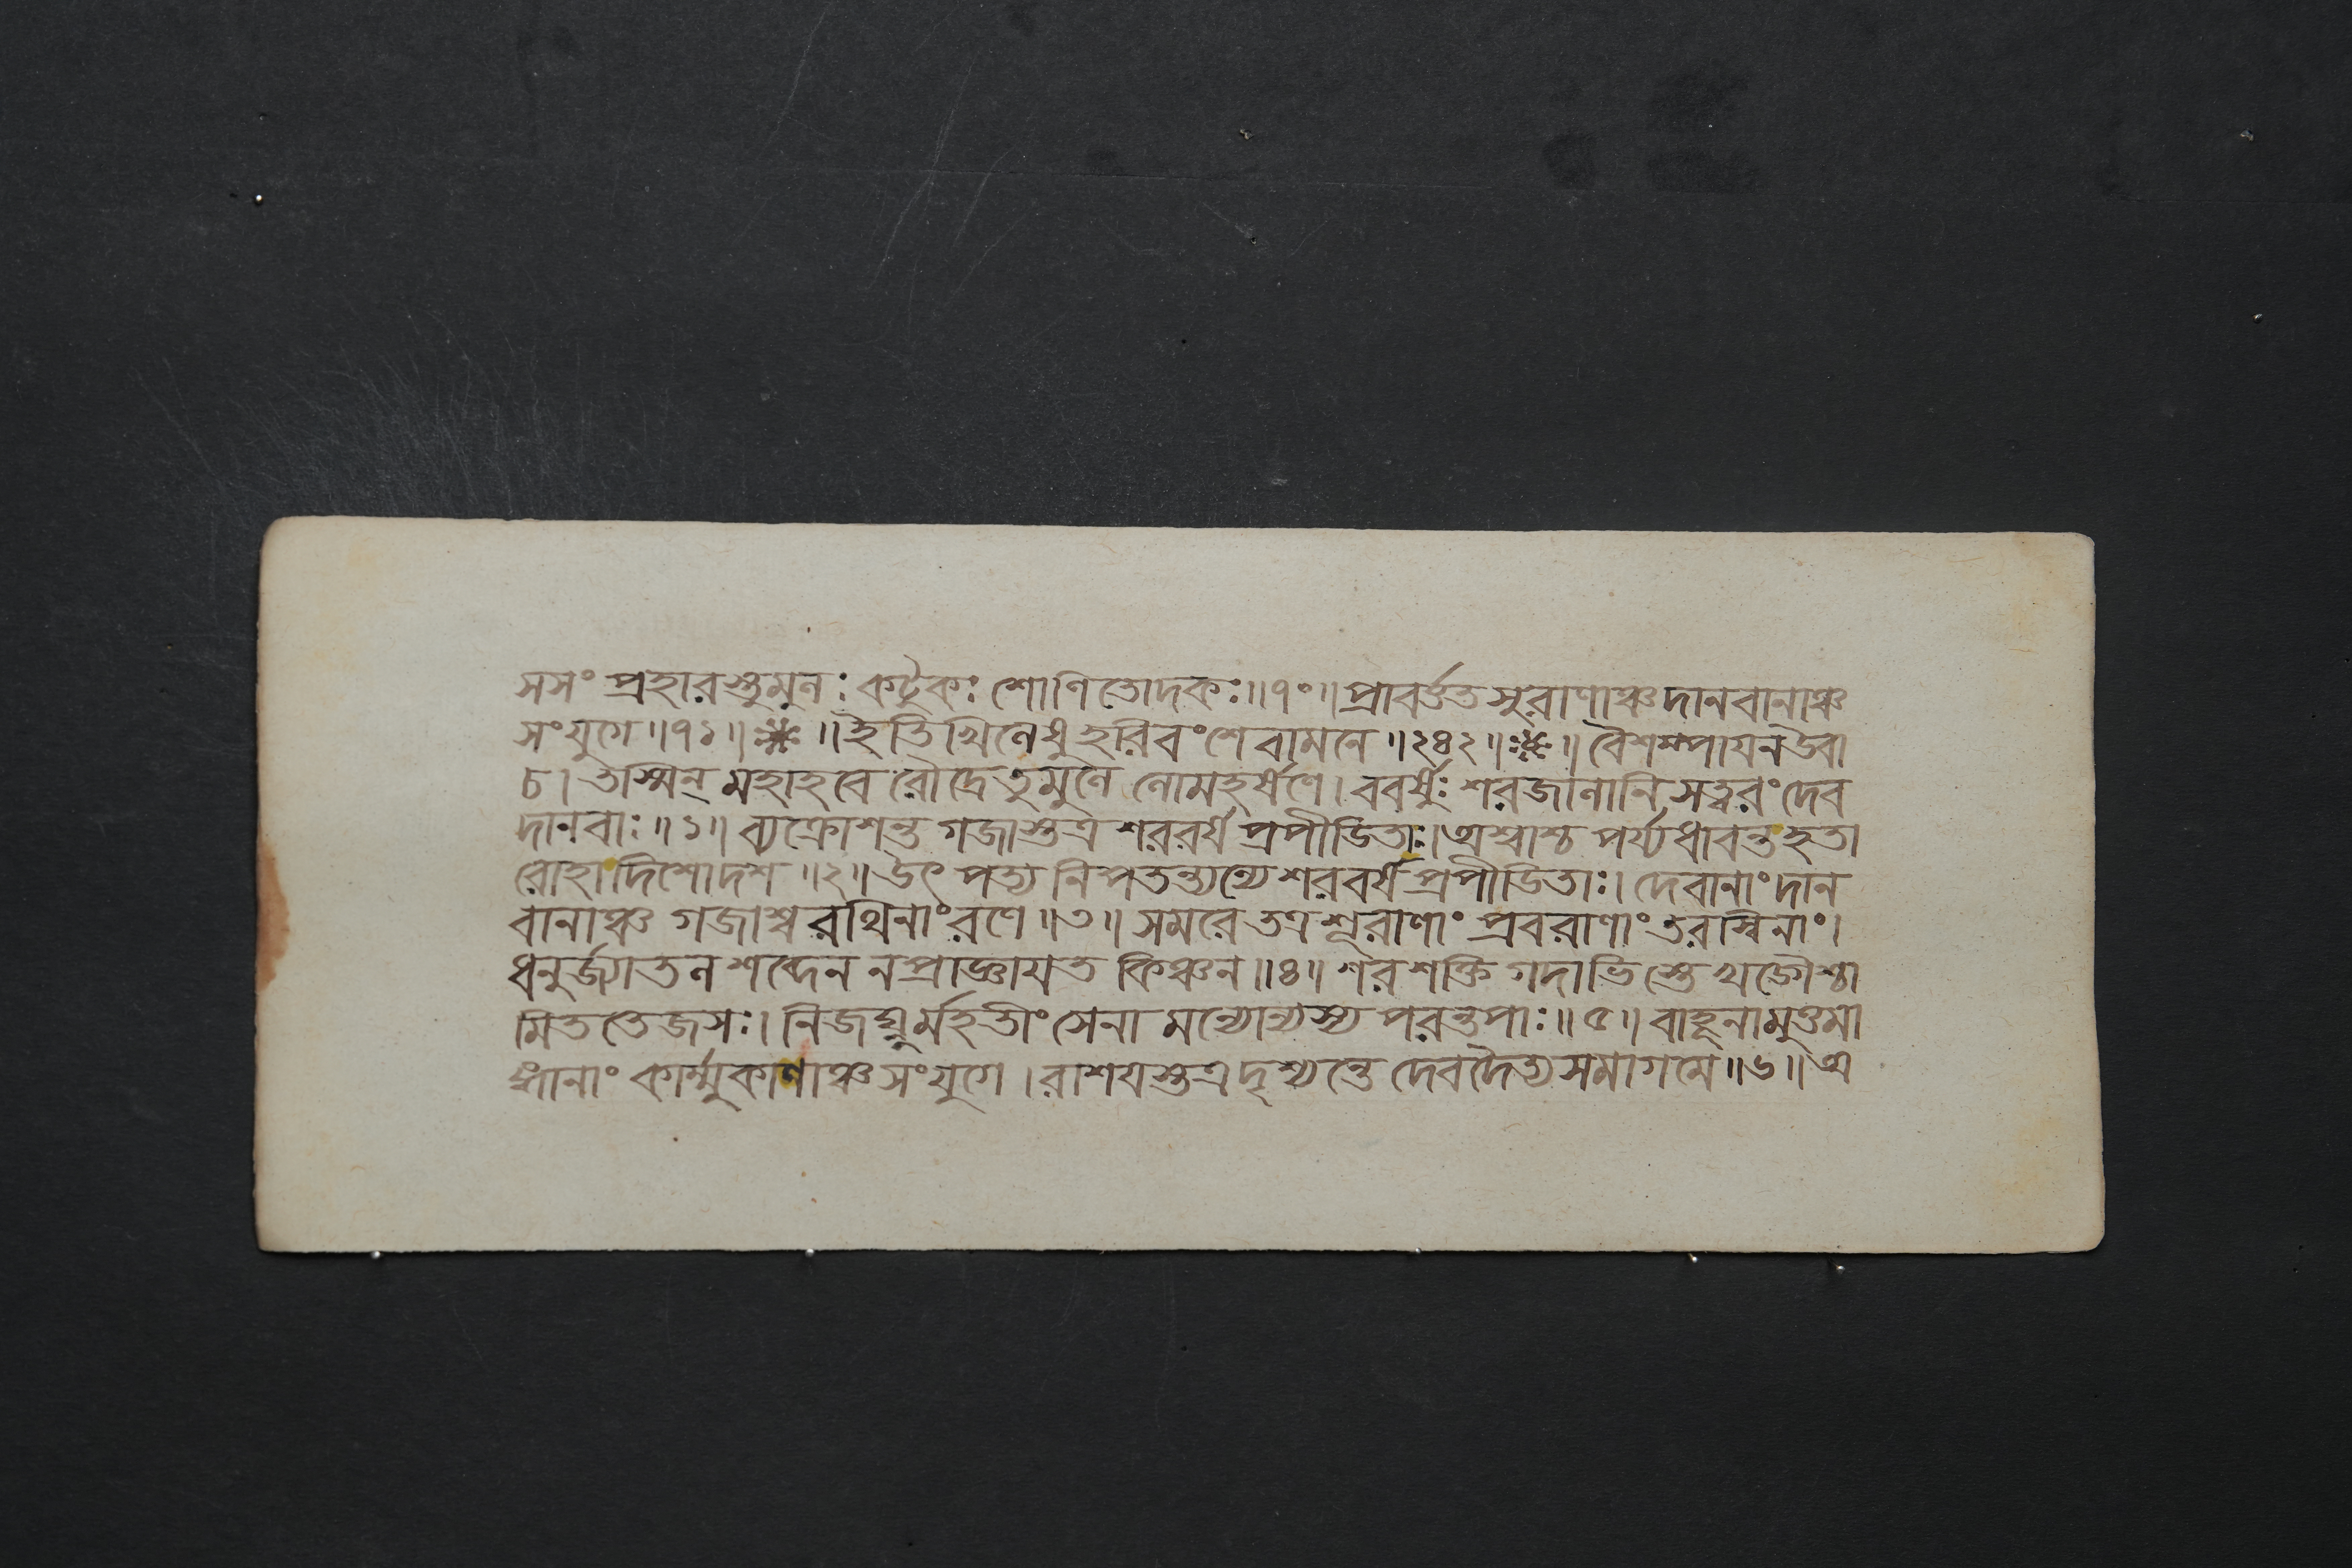 সসং প্রহারস্তুমুলঃ কটুকঃ শোণিতোদকঃ॥৭০॥প্রাবর্ত্তত সুরাণাঞ্চ দানবানাঞ্চ
সংযুগে॥৭১॥❈॥ইতি খিলেষু হরিবংশে বামনে॥২৪২॥❈॥বৈশম্পায়ন উবা
চ। তস্মিন্ মহাহবে রৌদ্রে তুমুলে লোমহর্ষণে। ববর্ষুঃ শরজালানি সত্বরং দেব
দানবাঃ॥১॥ ব্যক্রোশন্ত গজাস্তত্র শরবর্ষ প্রপীডিতাঃ। অশ্বাশ্চ পর্য্যধাবন্ত হতা
রোহা দিশোদশ॥২॥ উৎ পত্য নিপতন্ত্যন্যে শরবর্ষ প্রপীডিতাঃ। দেবানাং দান
বানাঞ্চ গজাশ্ব রথিনাং রণে॥৩॥ সমরে তত্র শূরাণাং প্রবরাণাং তরস্বিনাং।
ধনুর্জ্যাতল শব্দেন ন প্রাজ্ঞায়ত কিঞ্চন॥৪॥ শর শক্তি গদাভিস্তে খড্গৈশ্চা
মিত তেজসঃ। নিজঘ্নুর্মহতীং সেনা মন্যোন্যস্য পরন্তপাঃ॥৫॥ বাহূনামুত্তমা
ঙ্গানাং কার্ম্মুকাণাঞ্চ সংযুগে। রাশয়স্তত্র দৃশ্যন্তে দেবদৈত্য সমাগমে॥৬॥ অ